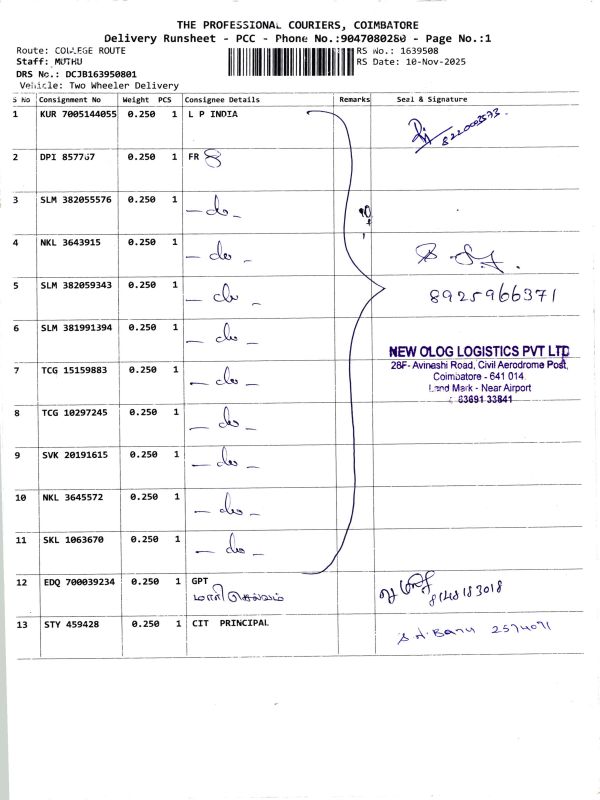 THE PROFESSIONAL COURIERS, COIMBATORE
Delivery Runsheet - PCC - Phone No.:9047080280 - Page No.:1
Route: COLLEGE ROUTE
RS No.: 1639508
Staff: MUTHU
RS Date: 10-Nov-2025
DRS No.: DCJB163950801
Vehicle: Two Wheeler Delivery
S No Consignment No Weight PCS Consignee Details Remarks Seal & Signature
1 KUR 7005144055 0.250 1 L P INDIA
2 DPI 857767 0.250 1 FR 8
3 SLM 382055576 0.250 1 - do -
4 NKL 3643915 0.250 1 - do -
5 SLM 382059343 0.250 1 - do - 8925966371
6 SLM 381991394 0.250 1 - do -
NEW OLOG LOGISTICS PVT LTD
28F- Avinashi Road, Civil Aerodrome Post,
Coimbatore - 641 014.
Land Mark - Near Airport
63691 33841
7 TCG 15159883 0.250 1 - do -
8 TCG 10297245 0.250 1 - do -
9 SVK 20191615 0.250 1 - do -
10 NKL 3645572 0.250 1 - do -
11 SKL 1063670 0.250 1 - do -
12 EDQ 700039234 0.250 1 GPT
மாரிசெல்வம் 8148183018
13 STY 459428 0.250 1 CIT PRINCIPAL S.A.Banu 2574071